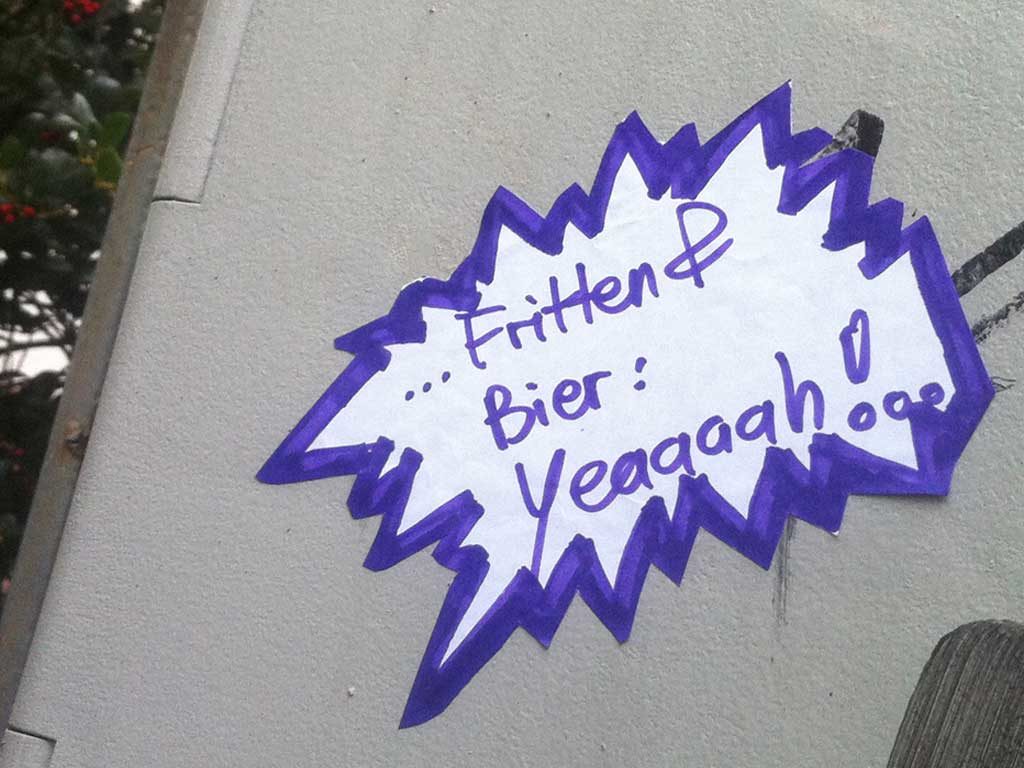 ... Fritten &
Bier:
Yeaaaah!...